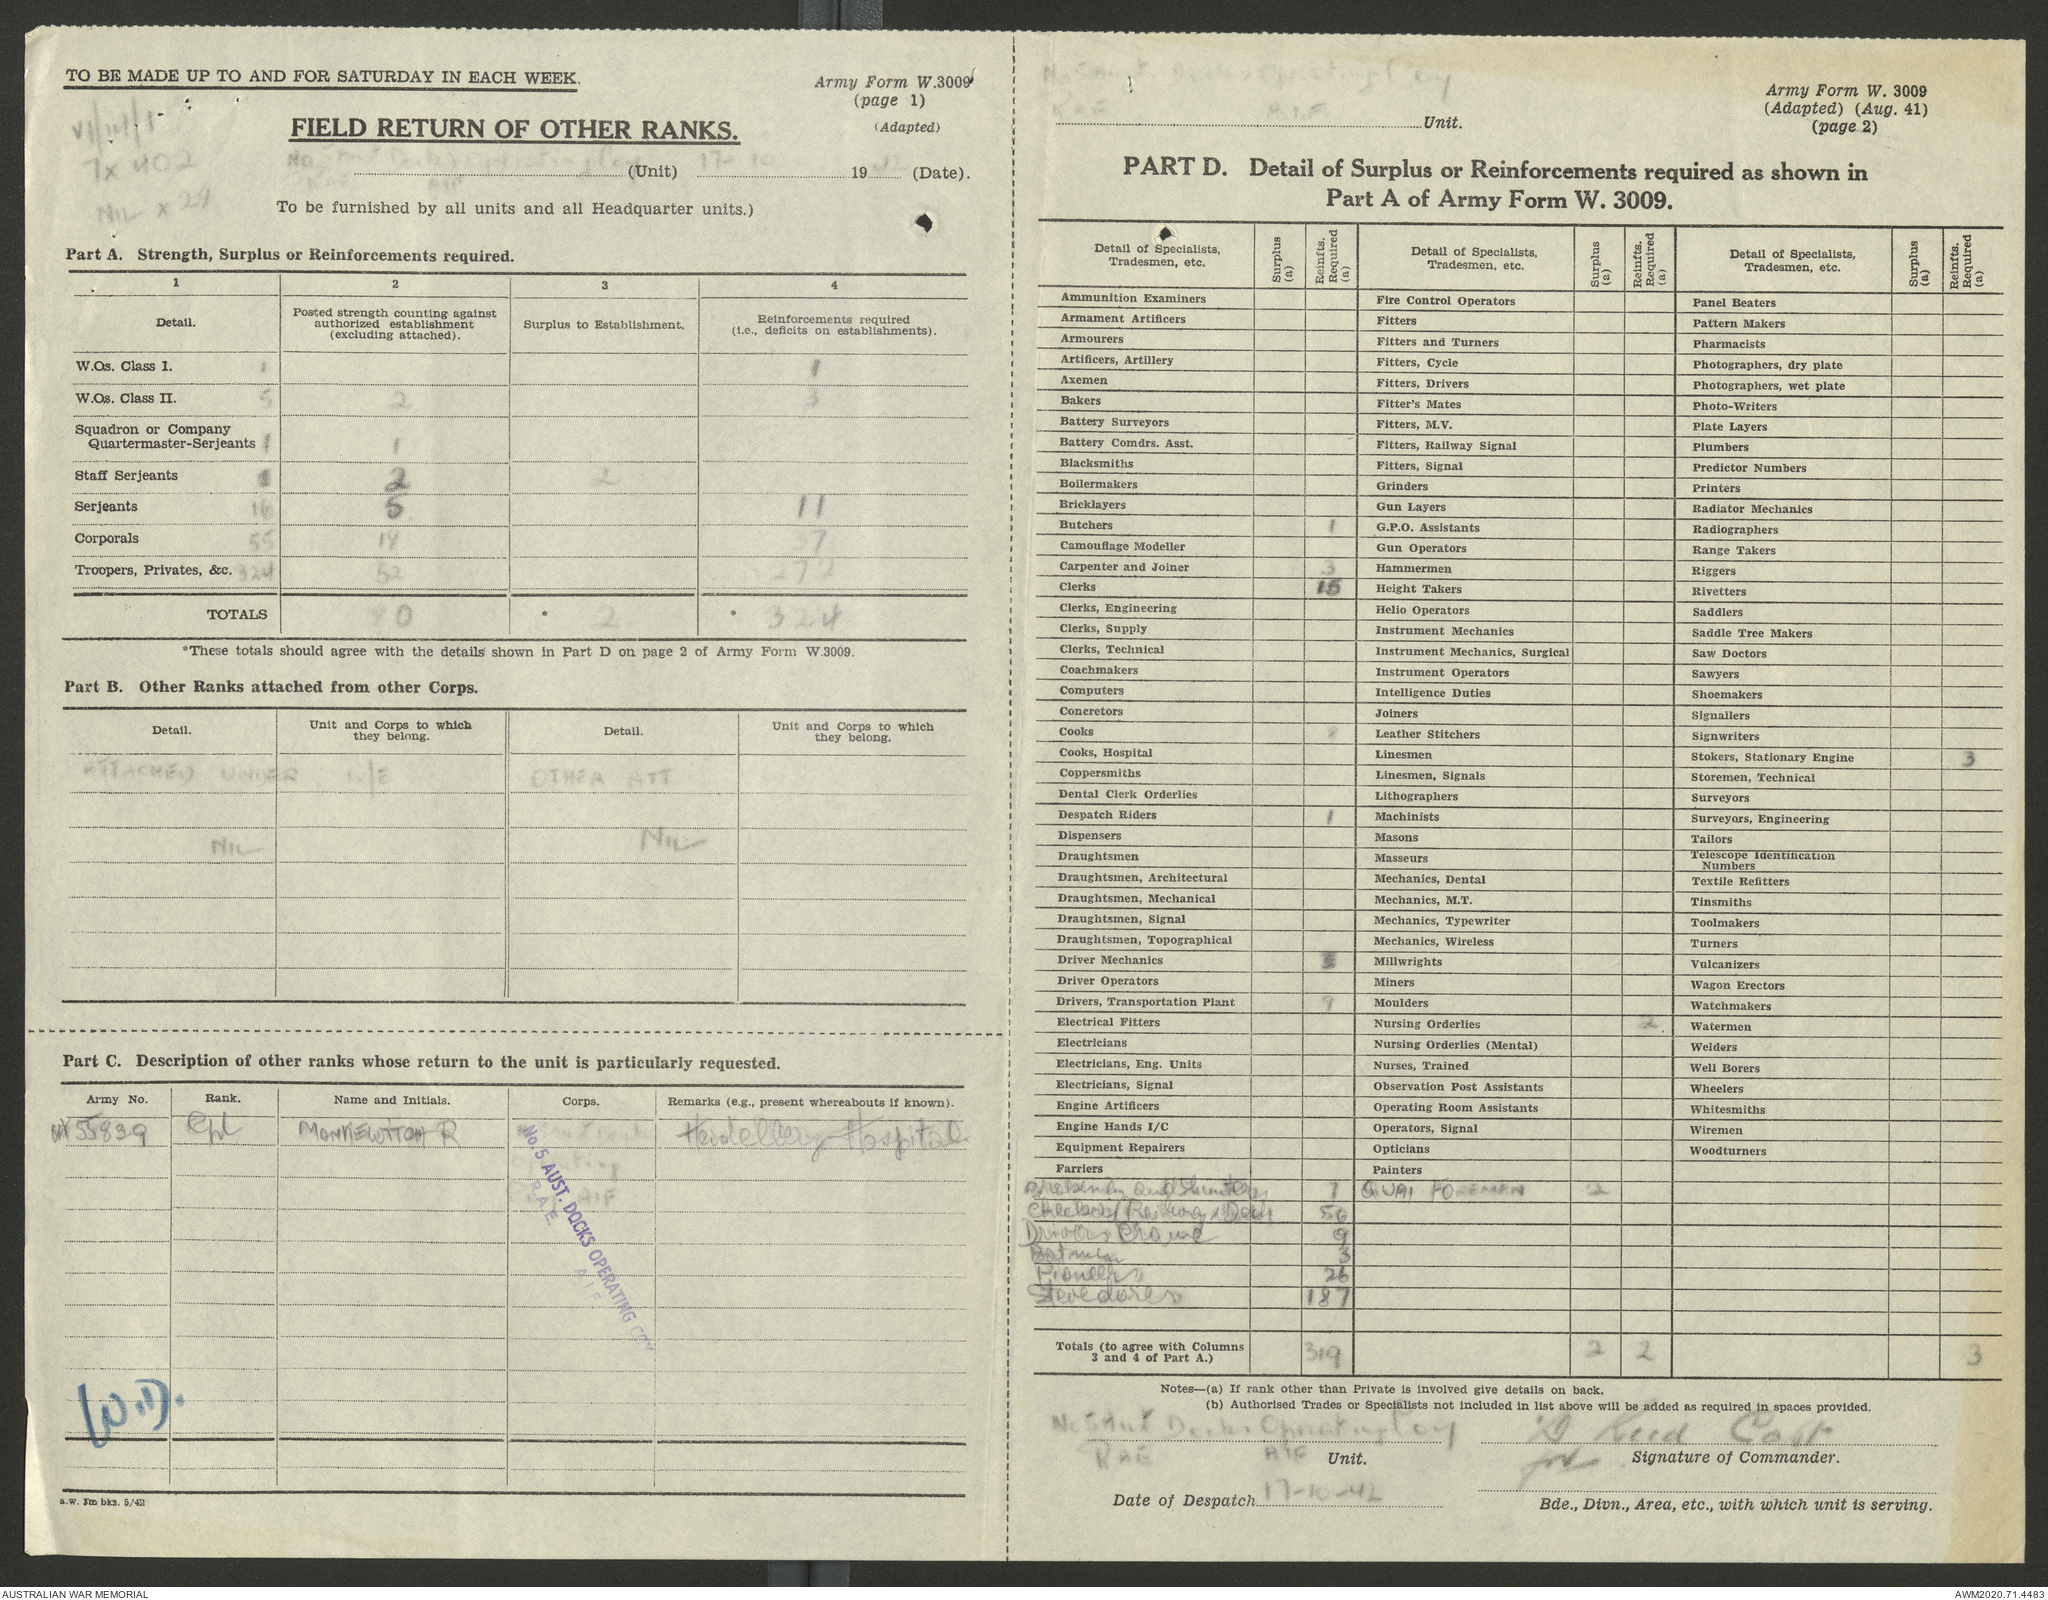 TO BE MADE UP TO AND FOR SATURDAY IN EACH WEEK.
Army Form W.3009
(page 1)
(Adapted)
VI/141/1
7 x 402
NIL x 24
FIELD RETURN OF OTHER RANKS.
No 5 Aust Docks Operating Coy (Unit) 17-10 1942 (Date).
RAE AIF
To be furnished by all units and all Headquarter units.)
Part A. Strength, Surplus or Reinforcements required.
1 2 3 4
Detail. Posted strength counting against authorized establishment (excluding attached). Surplus to Establishment. Reinforcements required (i.e., deficits on establishments).
W.Os. Class I. 1 1
W.Os. Class II. 5 2 3
Squadron or Company
Quartermaster-Serjeants 1 1
Staff Serjeants 2 2
Serjeants 16 5 11
Corporals 55 18 37
Troopers, Privates, &c. 324 52 272
TOTALS 80 * 2 * 324
*These totals should agree with the details shown in Part D on page 2 of Army Form W.3009.
Part B. Other Ranks attached from other Corps.
Detail. Unit and Corps to which they belong. Detail. Unit and Corps to which they belong.
ATTACHED UNDER W/E OTHER ATT
NIL NIL
Part C. Description of other ranks whose return to the unit is particularly requested.
Army No. Rank. Name and Initials. Corps. Remarks (e.g., present whereabouts if known).
55839 Cpl R Heidelberg Hospital
No. 5 AUST. DOCKS OPERATING COY
R.A.E. A I F
a.w. 3m bks. 5/42
No 5 Aust Docks Operating Coy
RAE AIF Unit.
Army Form W. 3009
(Adapted) (Aug. 41)
(page 2)
PART D. Detail of Surplus or Reinforcements required as shown in
Part A of Army Form W. 3009.
Detail of Specialists, Tradesmen, etc. Surplus (a) Reinfts. Required (a) Detail of Specialists, Tradesmen, etc. Surplus (a) Reinfts. Required (a) Detail of Specialists, Tradesmen, etc. Surplus (a) Reinfts. Required (a)
Ammunition Examiners Fire Control Operators Panel Beaters
Armament Artificers Fitters Pattern Makers
Armourers Fitters and Turners Pharmacists
Artificers, Artillery Fitters, Cycle Photographers, dry plate
Axemen Fitters, Drivers Photographers, wet plate
Bakers Fitter's Mates Photo-Writers
Battery Surveyors Fitters, M.V. Plate Layers
Battery Comdrs. Asst. Fitters, Railway Signal Plumbers
Blacksmiths Fitters, Signal Predictor Numbers
Boilermakers Grinders Printers
Bricklayers Gun Layers Radiator Mechanics
Butchers 1 G.P.O. Assistants Radiographers
Camouflage Modeller Gun Operators Range Takers
Carpenter and Joiner 3 Hammermen Riggers
Clerks 15 Height Takers Rivetters
Clerks, Engineering Helio Operators Saddlers
Clerks, Supply Instrument Mechanics Saddle Tree Makers
Clerks, Technical Instrument Mechanics, Surgical Saw Doctors
Coachmakers Instrument Operators Sawyers
Computers Intelligence Duties Shoemakers
Concretors Joiners Signallers
Cooks Leather Stitchers Signwriters
Cooks, Hospital Linesmen Stokers, Stationary Engine 3
Coppersmiths Linesmen, Signals Storemen, Technical
Dental Clerk Orderlies Lithographers Surveyors
Despatch Riders 1 Machinists Surveyors, Engineering
Dispensers Masons Tailors
Draughtsmen Masseurs Telescope Identification Numbers
Draughtsmen, Architectural Mechanics, Dental Textile Refitters
Draughtsmen, Mechanical Mechanics, M.T. Tinsmiths
Draughtsmen, Signal Mechanics, Typewriter Toolmakers
Draughtsmen, Topographical Mechanics, Wireless Turners
Driver Mechanics Millwrights Vulcanizers
Driver Operators Miners Wagon Erectors
Drivers, Transportation Plant 9 Moulders Watchmakers
Electrical Fitters Nursing Orderlies 2 Watermen
Electricians Nursing Orderlies (Mental) Welders
Electricians, Eng. Units Nurses, Trained Well Borers
Electricians, Signal Observation Post Assistants Wheelers
Engine Artificers Operating Room Assistants Whitesmiths
Engine Hands I/C Operators, Signal Wiremen
Equipment Repairers Opticians Woodturners
Farriers Painters
Brakesmen and Shunters 7 QUAY FOREMEN 2
Checkers Railway & Dock 56
Drivers Crane 9
Batmen 3
Pioneers 26
Stevedores 187
Totals (to agree with Columns 3 and 4 of Part A.) 319 2 2 3
Notes—(a) If rank other than Private is involved give details on back.
(b) Authorised Trades or Specialists not included in list above will be added as required in spaces provided.
No 5 Aust Docks Operating Coy
RAE AIF Unit.
Reed Capt
for Signature of Commander.
Date of Despatch 17-10-42
Bde., Divn., Area, etc., with which unit is serving.
AUSTRALIAN WAR MEMORIAL
AWM2020.71.4483